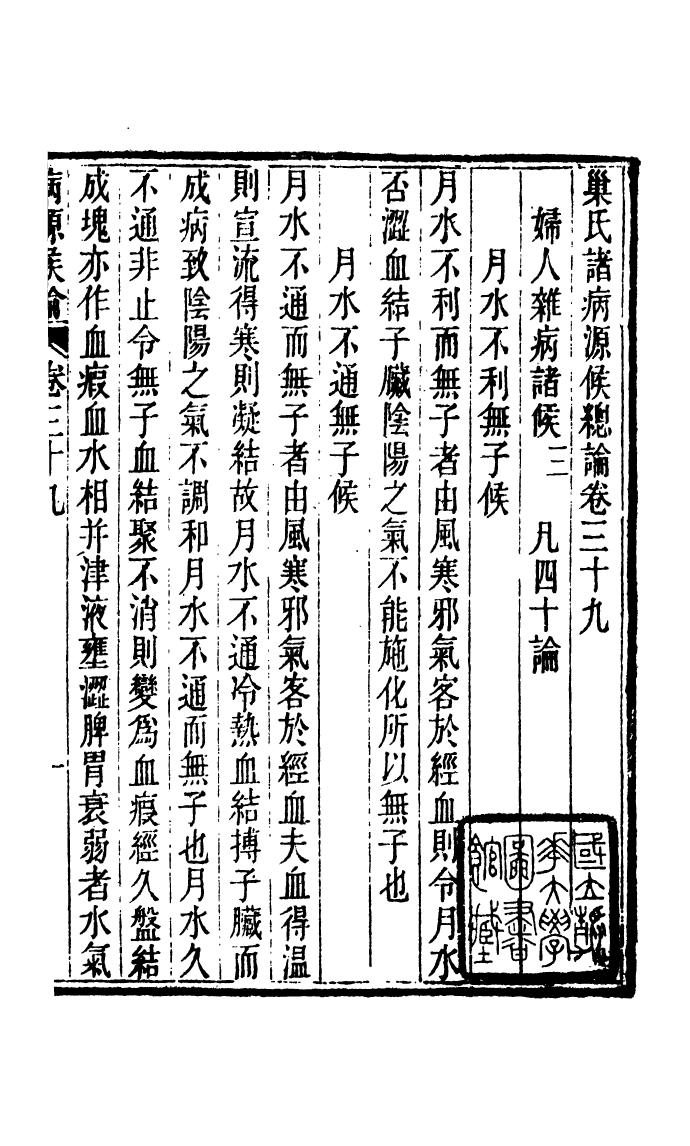 巢氏諸病源候總論卷三十九
婦人雜病諸候三　凡四十論
月水不利無子候
月水不利而無子者由風寒邪氣客於經血則令月水
否澀血結子臟陰陽之氣不能施化所以無子也
月水不通無子候
月水不通而無子者由風寒邪氣客於經血夫血得溫
則宣流得寒則凝結故月水不通冷熱血結搏子臟而
成病致陰陽之氣不調和月水不通而無子也月水久
不通非止令無子血結聚不消則變爲血瘕經久盤結
成塊亦作血瘕血水相并津液壅澀脾胃衰弱者水氣
病源候論　卷三十九　一
國立清
華大學
圖書
館藏